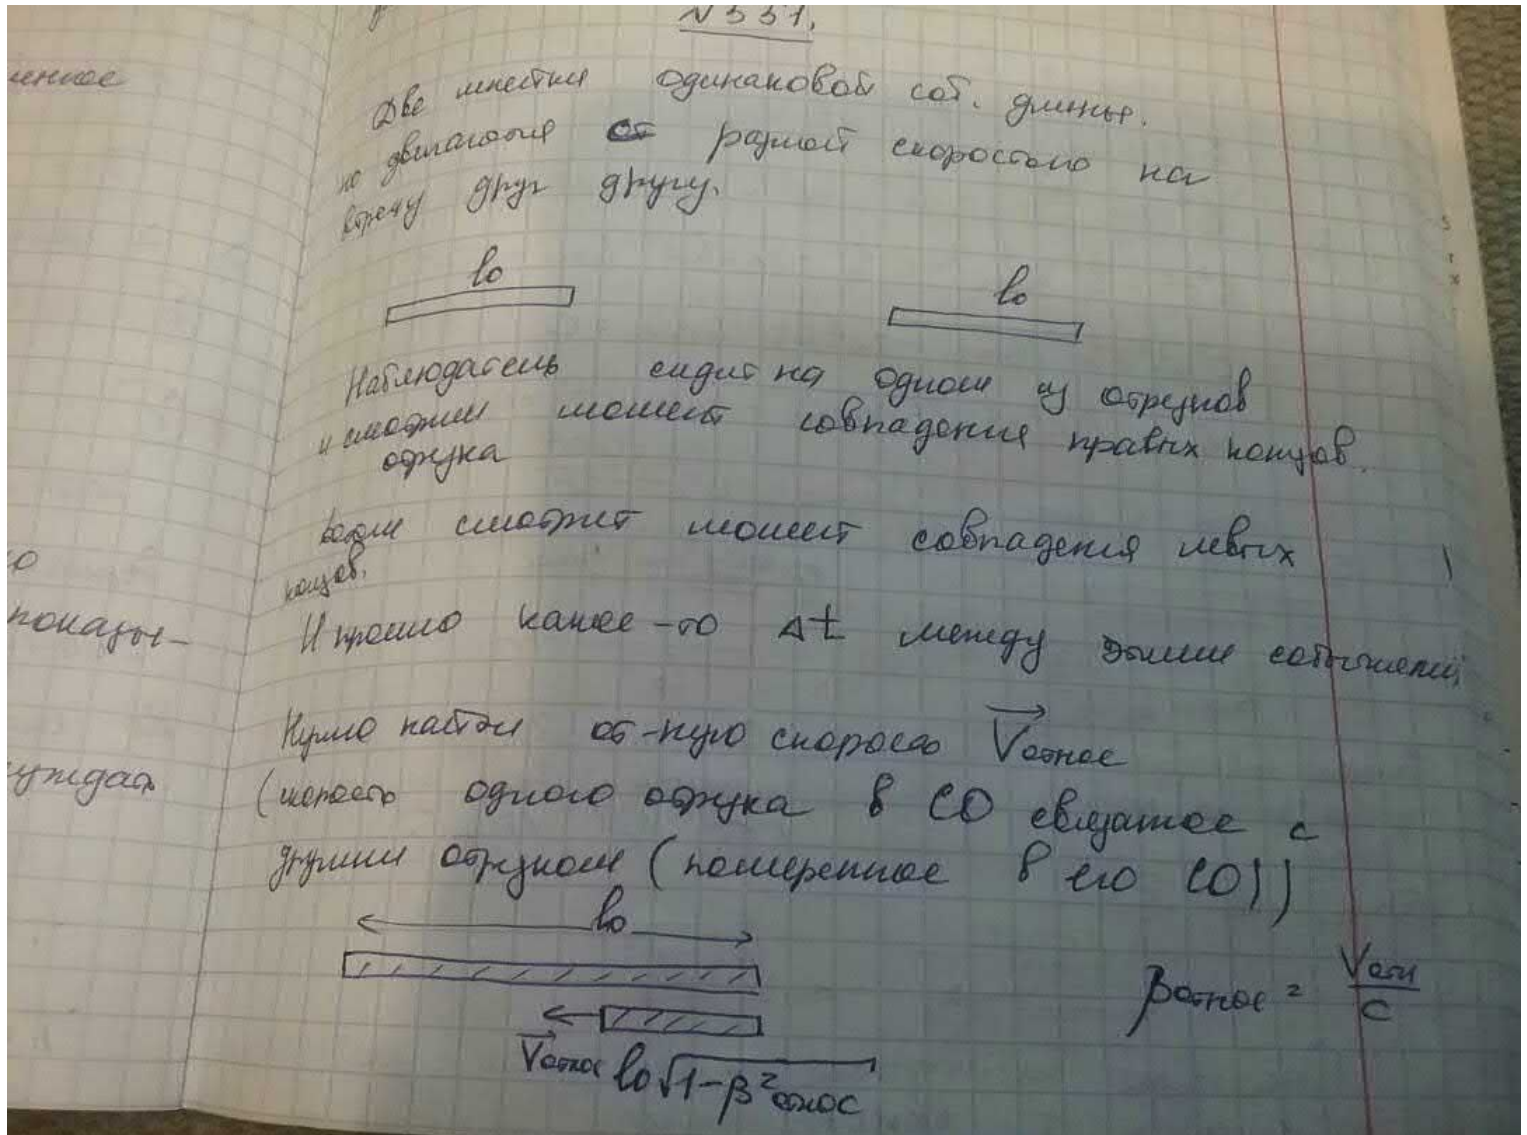 №331.
енное
Две линейки одинаковой соб. длины.
но двигаются с разной скоростью на
встречу друг другу.
l₀
l₀
Наблюдатель сидит на одном из отрезков
и смотрит момент совпадения правых концов.
отрезка
потом смотрит момент совпадения левых
концов.
И прошло какое-то Δt между этими событиями,
показы-
Нужно найти от-ную скорость V⃗относ
(скорость одного отрезка в СО связанное с
уждать
другим отрезком (померенное в его СО))
l₀
V⃗относ l₀√1-β²относ
βотнос = Vотн/c